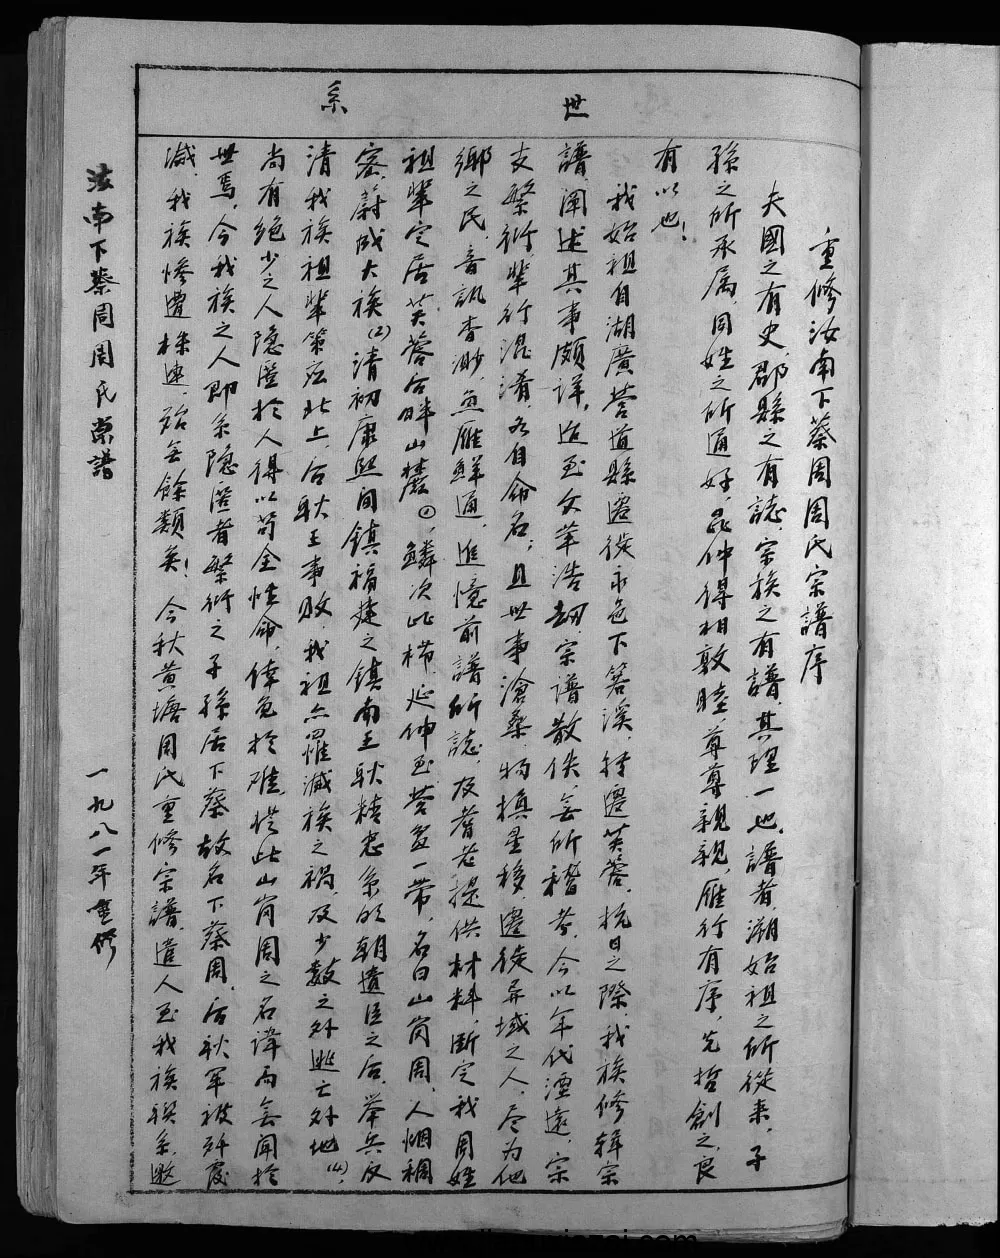 世系
重修汝南下蔡周周氏宗譜序
夫國之有史，郡縣之有誌，宗族之有譜，其理一也。譜者，溯始祖之所從来，子
孫之所承属，同姓之所通好，昆仲得相敦睦，尊尊親親，雁行有序，先哲創之，良
有以也！
我始祖自湖廣营道縣遷徙永邑下箬溪，转遷芙蓉，抗日之際，我族修辑宗
譜，阐述其事頗详，迨至文革浩劫，宗谱散佚，無所稽考，今以年代湮遠，宗
支繁衍，辈行混淆，各自命名；且世事滄桑，物换星移，遷徙异域之人，尽为他
鄉之民，音訊杳渺，魚雁鮮通，追憶前譜所誌，及耆老提供材料，断定我周姓
祖辈定居芙蓉后畔山麓，鱗次比栉，延伸至营盘一带，名曰山岗周，人烟稠
密，蔚成大族(2)清初康熙间镇福建之鎮南王耿精忠系明朝遗臣之后，举兵反
清我族祖辈策应北上，后耿王事败，我祖亦罹滅族之禍，及少数之外逃亡外地(4)，
尚有绝少之人隐匿於人得以苟全性命，倖免於难，從此山岗周之名諱而無聞於
世焉，今我族之人即系隐匿者繁衍之子孫居下蔡故名下蔡周，后耿军被歼覆
滅，我族惨遭株連，殆無餘類矣！今秋黄塘周氏重修宗譜，遣人至我族联系，邀
汝南下蔡周周氏宗譜
一九八一年重修